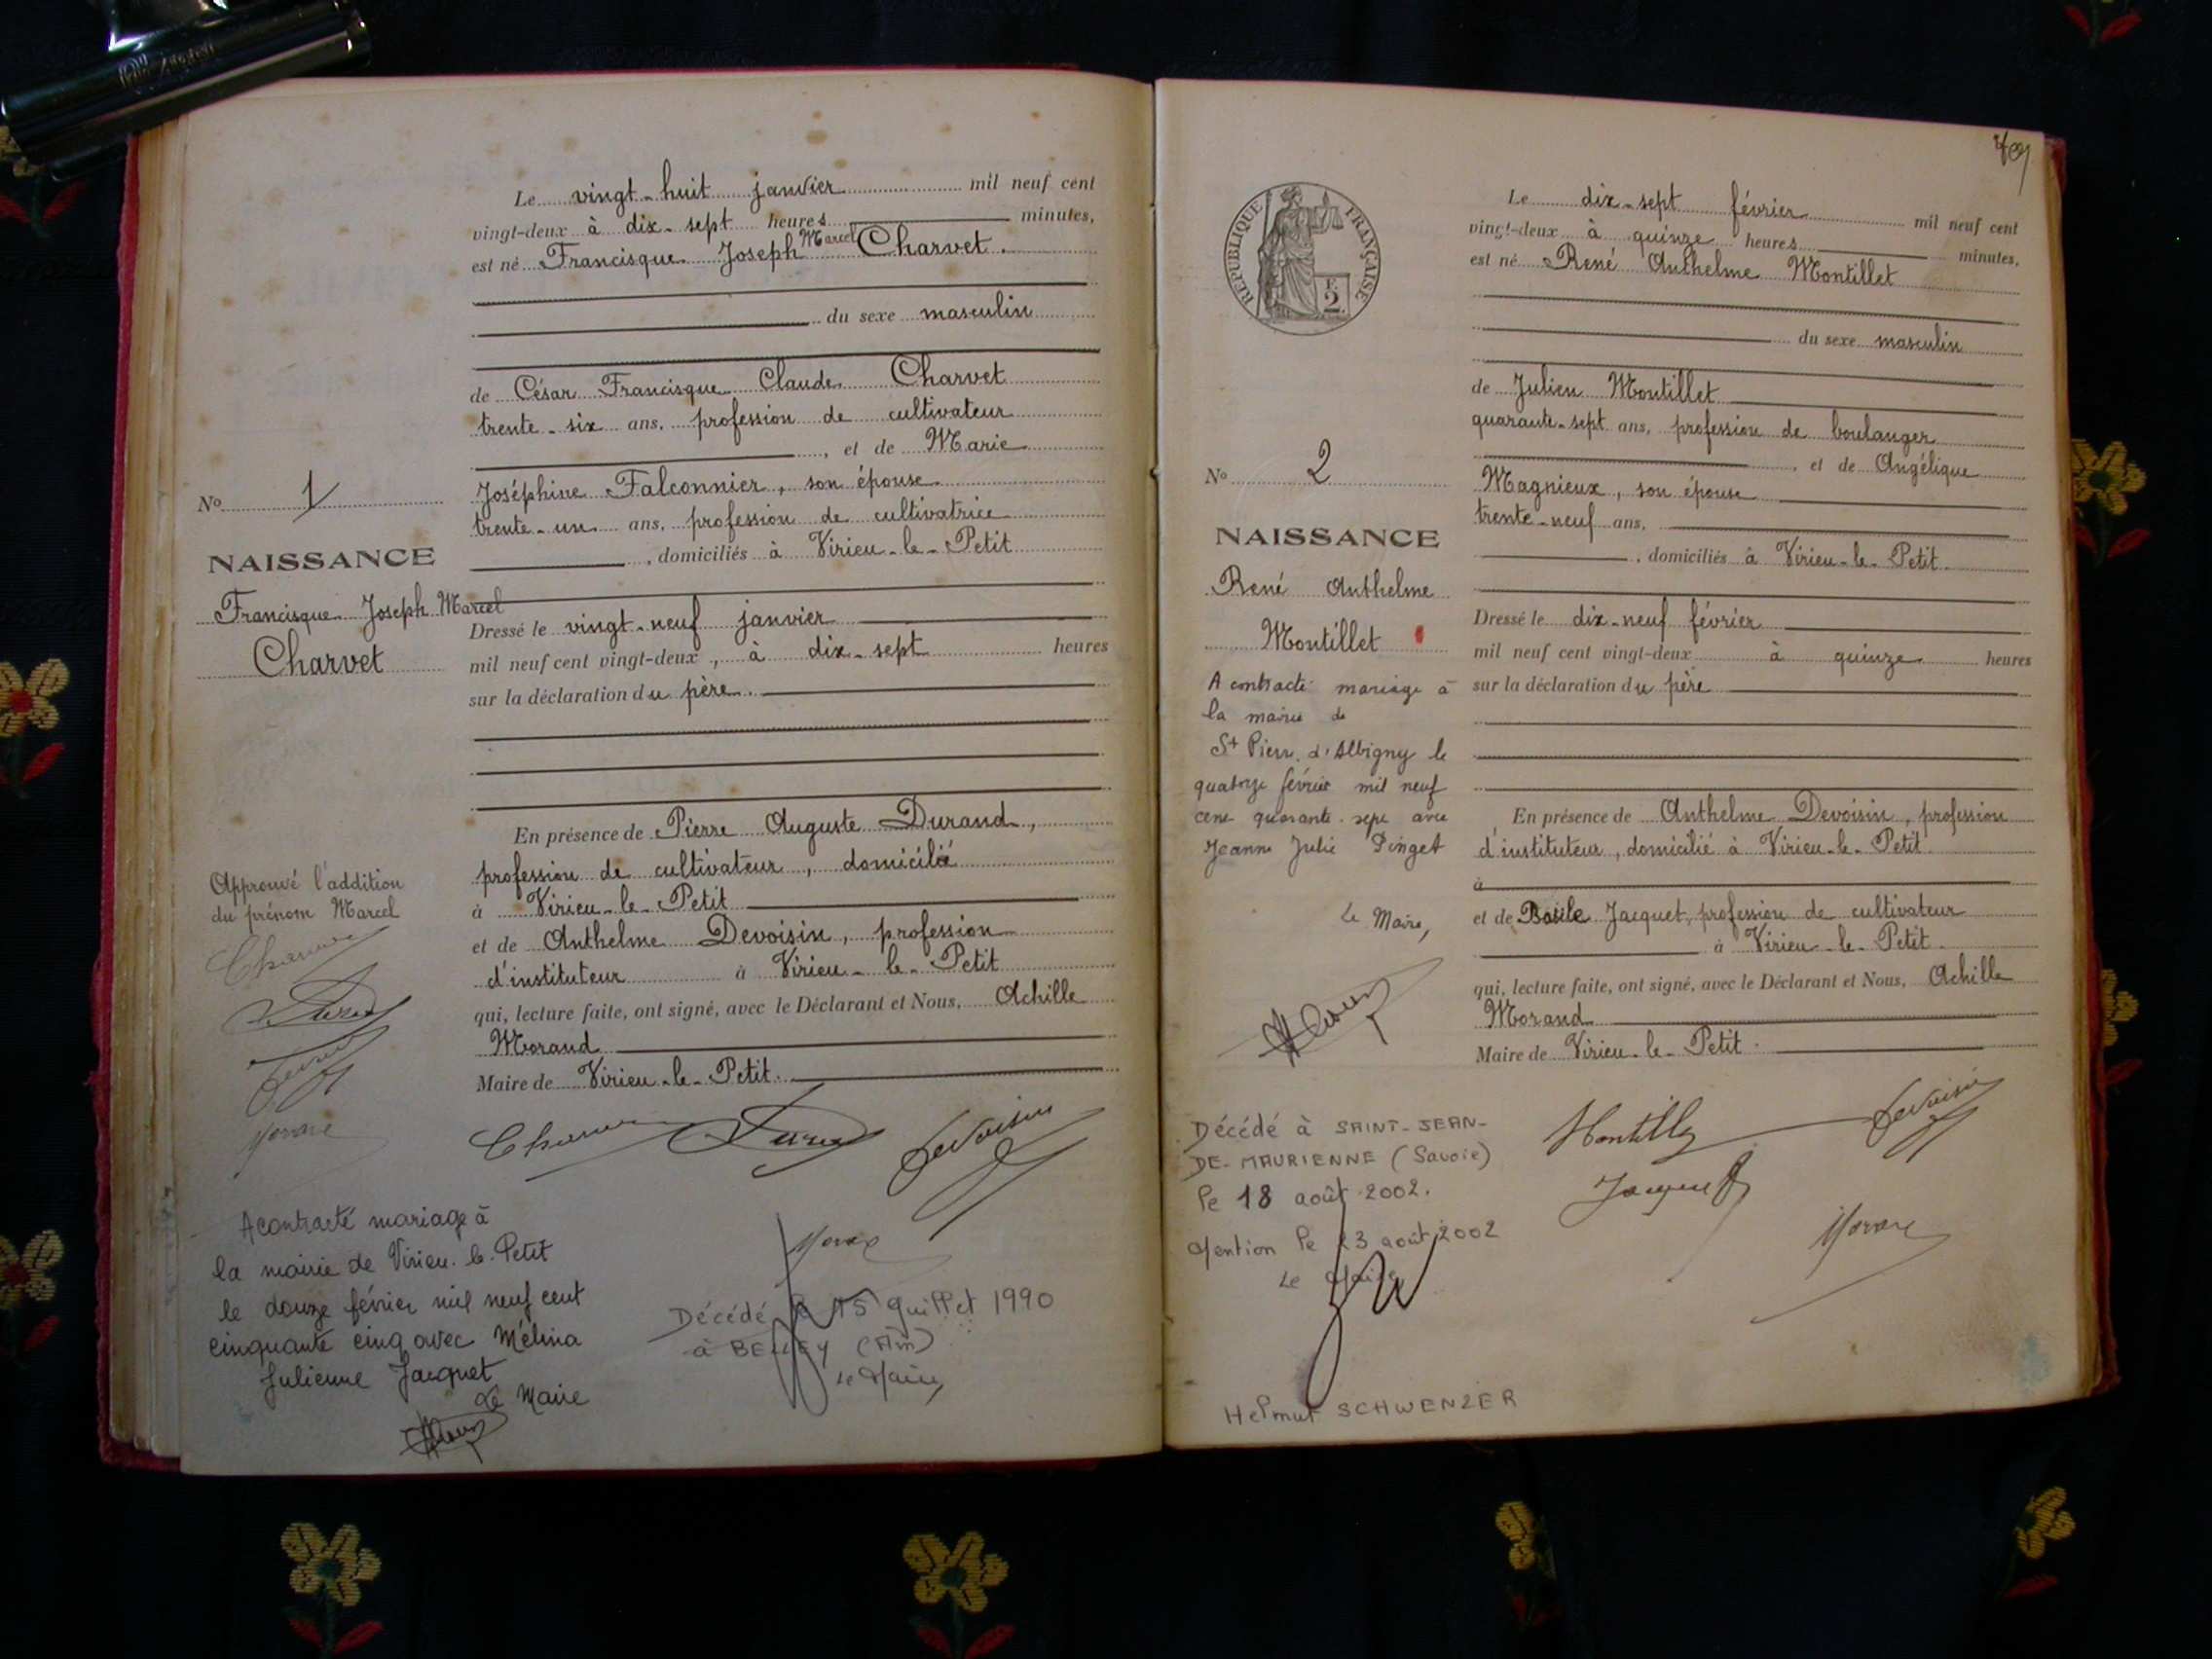 Le vingt-huit janvier mil neuf cent
vingt-deux à dix-sept heures minutes,
est né Francisque Joseph Marcel Charvet.
du sexe masculin
de César Francisque Claude Charvet
trente-six ans, profession de cultivateur
, et de Marie
Joséphine Falconnier, son épouse
trente-un ans, profession de cultivatrice
, domiciliés à Virieu-le-Petit
Dressé le vingt-neuf janvier
mil neuf cent vingt-deux, à dix-sept heures
sur la déclaration du père.
En présence de Pierre Auguste Durand,
profession de cultivateur, domicilié
à Virieu-le-Petit
et de Anthelme Devoisin, profession
d'instituteur à Virieu-le-Petit
qui, lecture faite, ont signé, avec le Déclarant et Nous, Achille
Morand
Maire de Virieu-le-Petit.
No 1
NAISSANCE
Francisque Joseph Marcel
Charvet
Approuvé l'addition
du prénom Marcel
A contracté mariage à
la mairie de Virieu-le-Petit
le douze février mil neuf cent
cinquante cinq avec Mélina
Julienne Jacquet
Le Maire
Devoisin
Décédé le 15 Juillet 1990
à BELLEY (Ain)
Le Maire,
RÉPUBLIQUE FRANÇAISE
2
Le dix-sept février mil neuf cent
vingt-deux à quinze heures minutes,
est né René Anthelme Montillet
du sexe masculin
de Julien Montillet
quarante-sept ans, profession de boulanger
, et de Angélique
Magnieux, son épouse
trente-neuf ans,
, domiciliés à Virieu-le-Petit.
Dressé le dix-neuf février
mil neuf cent vingt-deux à quinze heures
sur la déclaration du père
En présence de Anthelme Devoisin, profession
d'instituteur, domicilié à Virieu-le-Petit
à
et de Basile Jacquet, profession de cultivateur
à Virieu-le-Petit.
qui, lecture faite, ont signé, avec le Déclarant et Nous, Achille
Morand
Maire de Virieu-le-Petit.
No 2
NAISSANCE
René Anthelme
Montillet
A contracté mariage à
la mairie de
St Pierre d'Albigny le
quatorze février mil neuf
cent quarante-sept avec
Jeanne Julie Pinget
Le Maire,
Décédé à SAINT-JEAN-
DE-MAURIENNE (Savoie)
le 18 août 2002.
Mention le 23 août 2002
Le Maire,
Helmut SCHWENZER
Devoisin
Jacquet